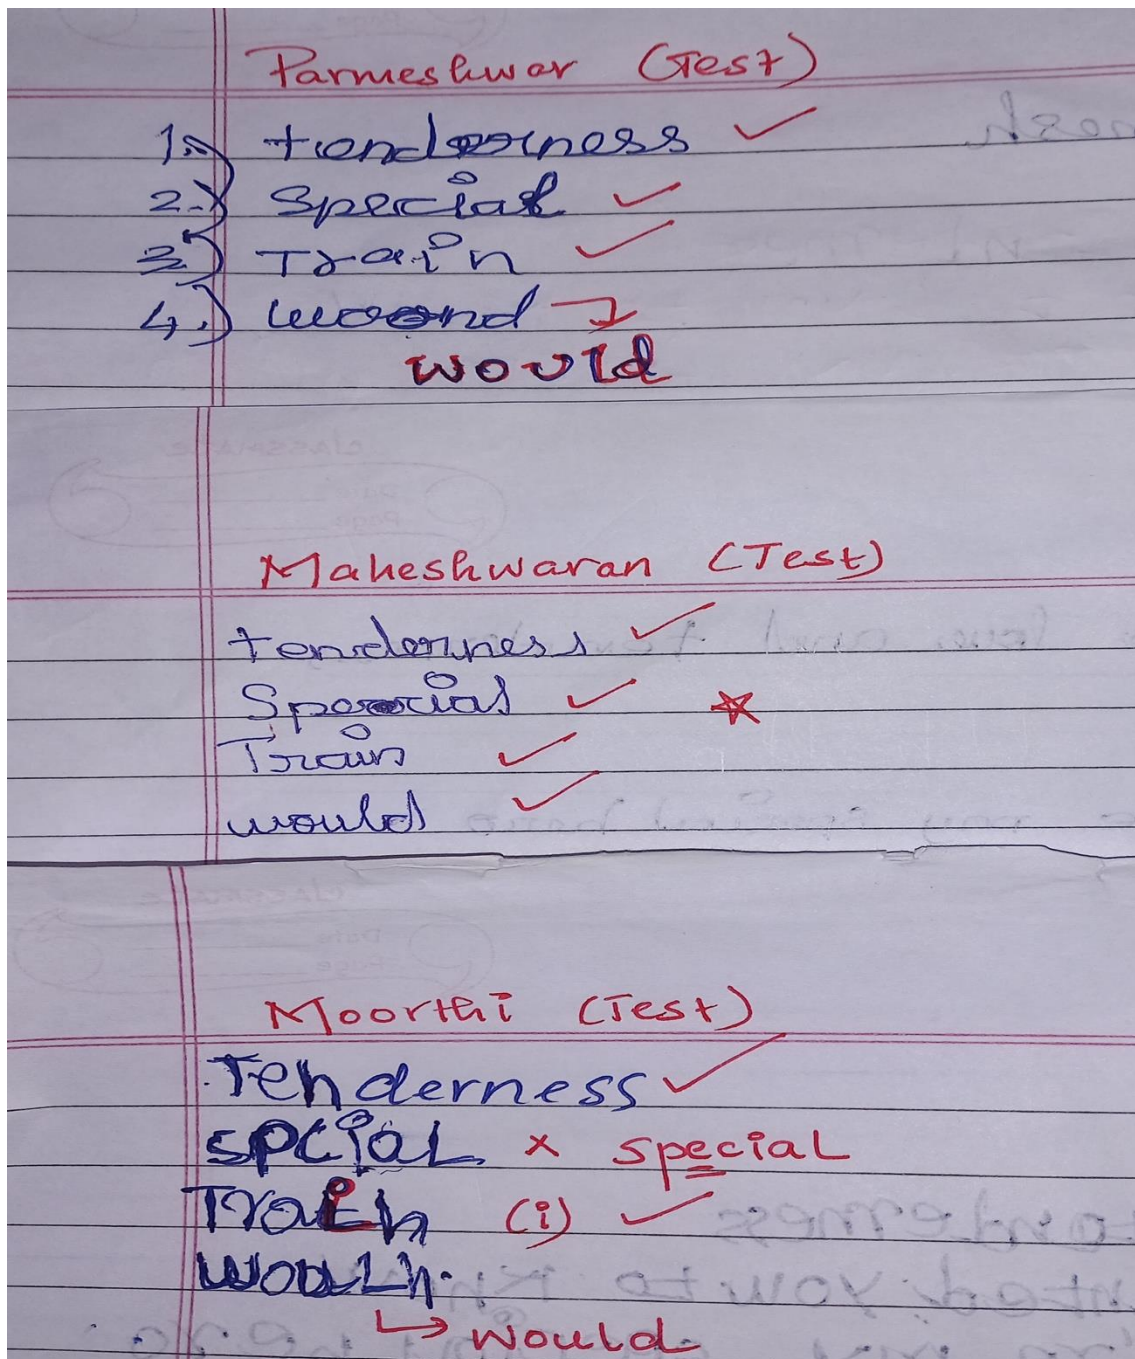 Parmeshwar (Test)
1.) tenderness
2.) Special
3) Train
4.) woond
would
Maheshwaran (Test)
tenderness
Special
Train
would
Moorthi (Test)
Tenderness
spcial x special
Train (i)
would